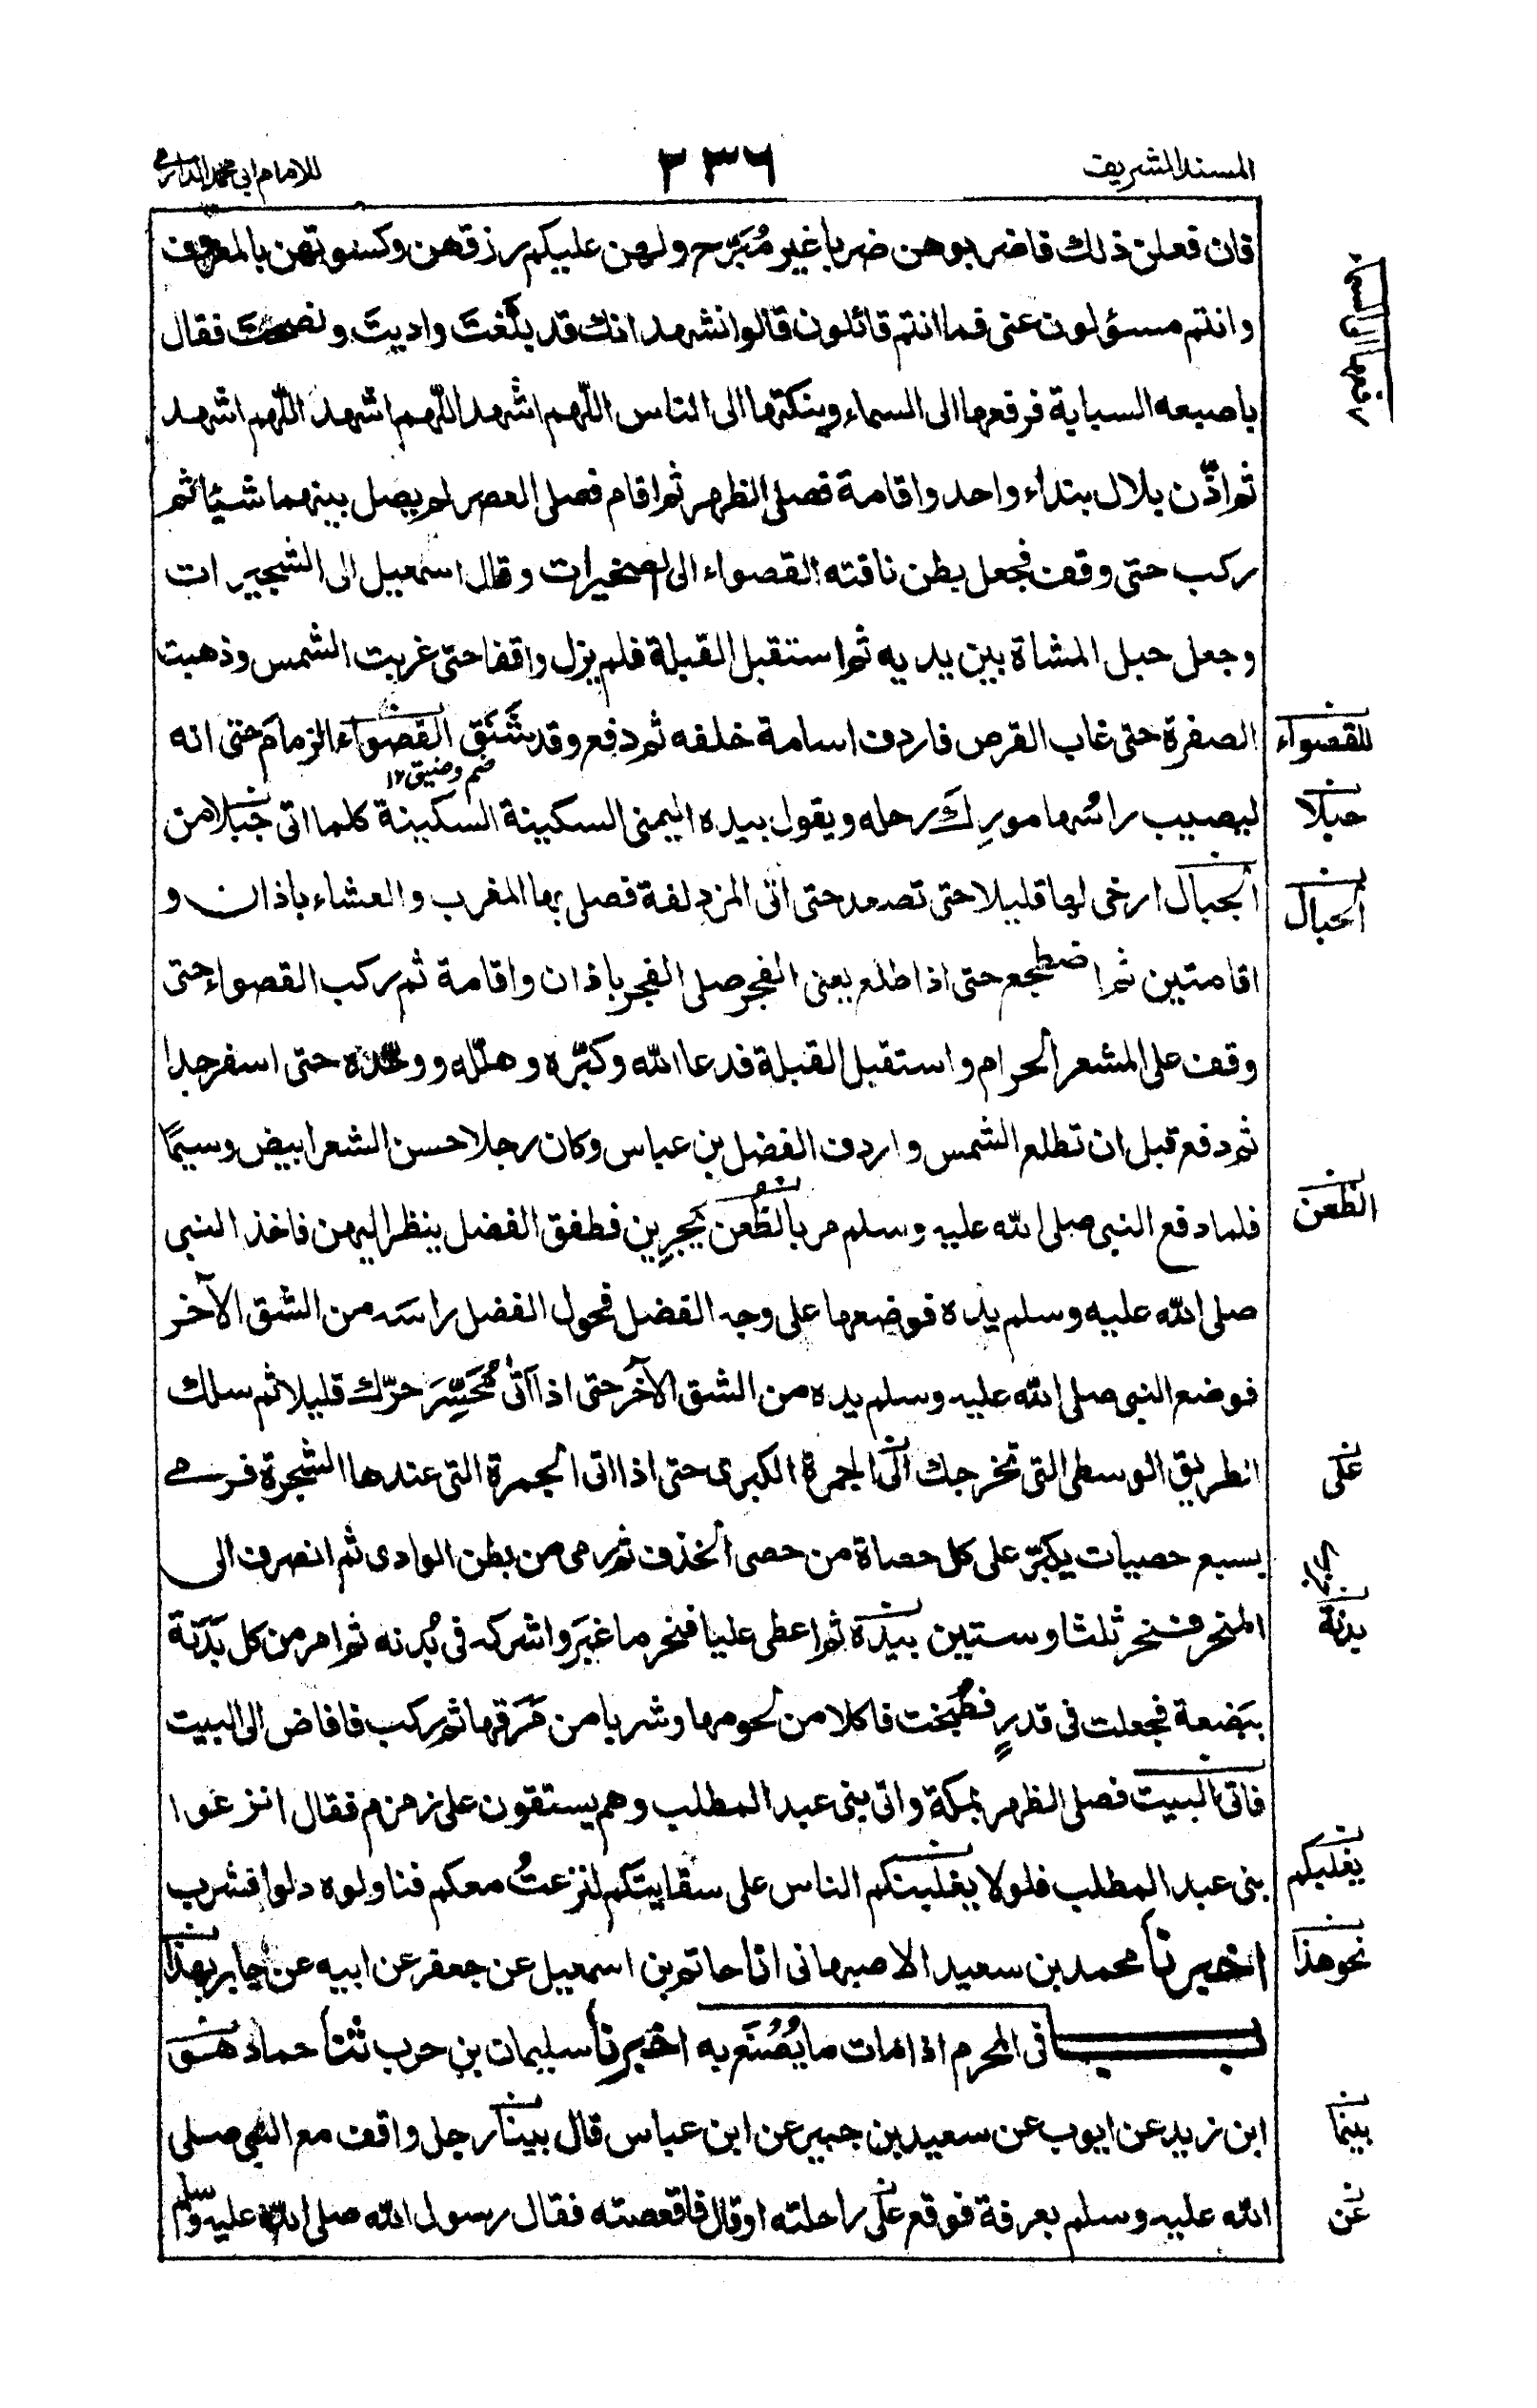 المسند الشريف
٢٣٦
للامام ابى محمد الدارمى
فان فعلن ذلك فاضربوهن ضربا غير مُبَرَّح ولهن عليكم رزقهن وكسوتهن بالمعروف
وانتم مسؤلون عنى فما انتم قائلون قالوا نشهد انك قد بلّغتَ واديتَ ونصحتَ فقال
باصبعه السبابة فرفعها الى السماء وينكتها الى الناس اللّهم اشهد اللّهم اشهد اللّهم اشهد
ثم اذّن بلال بنداء واحد واقامة فصلى الظهر ثم اقام فصلى العصر لم يصل بينهما شيئا ثم
ركب حتى وقف فجعل بطن ناقته القصواء الى الصخيرات وقال اسمعيل الى الشجيرات
وجعل حبل المشاة بين يديه ثم استقبل القبلة فلم يزل واقفا حتى غربت الشمس وذهبت
الصفرة حتى غاب القرص فاردف اسامة خلفه ثم دفع وقد شَنَق القصواء الزمام حتى انه
للقصواء
ضم وضيق١٢
ليصيب راسُها مورِكَ رحله ويقول بيده اليمنى السكينة السكينة كلما اتى جَبلا من
حبلا
الجبال ارخى لها قليلا حتى تصعد حتى اتى المزدلفة فصلى بها المغرب والعشاء باذان و
الحبال
اقامتين ثم اضطجع حتى اذا طلع يعنى الفجر صلى الفجر باذان واقامة ثم ركب القصواء حتى
وقف على المشعر الحرام واستقبل القبلة فدعا الله وكبّره وهلّله ووحّده حتى اسفر جدا
ثم دفع قبل ان تطلع الشمس واردف الفضل بن عباس وكان رجلا حسن الشعر ابيض وسيمًا
فلما دفع النبى صلى الله عليه وسلم مر بالظُعن يَجرِين فطفق الفضل ينظر اليهن فاخذ النبى
الظعن
صلى الله عليه وسلم يده فوضعها على وجه الفضل فحول الفضل راسه من الشق الآخر
فوضع النبى صلى الله عليه وسلم يده من الشق الآخر حتى اذا اتى مُحَسِّرَ حرّك قليلا ثم سلك
الطريق الوسطى التى تخرجك الى الجمرة الكبرى حتى اذا اتى الجمرة التى عندها الشجرة فرمى
على
بسبع حصيات يكبّر على كل حصاة من حصى الخذف ثم رمى من بطن الوادى ثم انصرف الى
المنحر فنحر ثلثا وستين بيده ثم اعطى عليا فنحر ما غبَر واشركه فى بُدنه ثم امر من كل بَدَنة
بدنة
ببَضعة فجعلت فى قدرٍ فطُبخت فاكلا من لحومها وشربا من مَرَقها ثم ركب فافاض الى البيت
فاتى البيت فصلى الظهر بمكة واتى بنى عبد المطلب وهم يستقون على زمزم فقال انزعوا
بنى عبد المطلب فلولا يغلبنكم الناس على سقايتكم لنزعتُ معكم فناولوه دلوا فشرب
يغلبكم
اخبرنا محمد بن سعيد الاصبهانى انا حاتم بن اسمعيل عن جعفر عن ابيه عن جابر بهذا
نحو هذا
باب فى المحرم اذا مات ما يُصْنَع به اخبرنا سليمان بن حرب ثنا حماد هو
ابن زيد عن ايوب عن سعيد بن جبير عن ابن عباس قال بينا رجل واقف مع النبى صلى
بينما
الله عليه وسلم بعرفة فوقع على راحلته او قال فاقعصته فقال رسول الله صلى الله عليه وسلم
عن